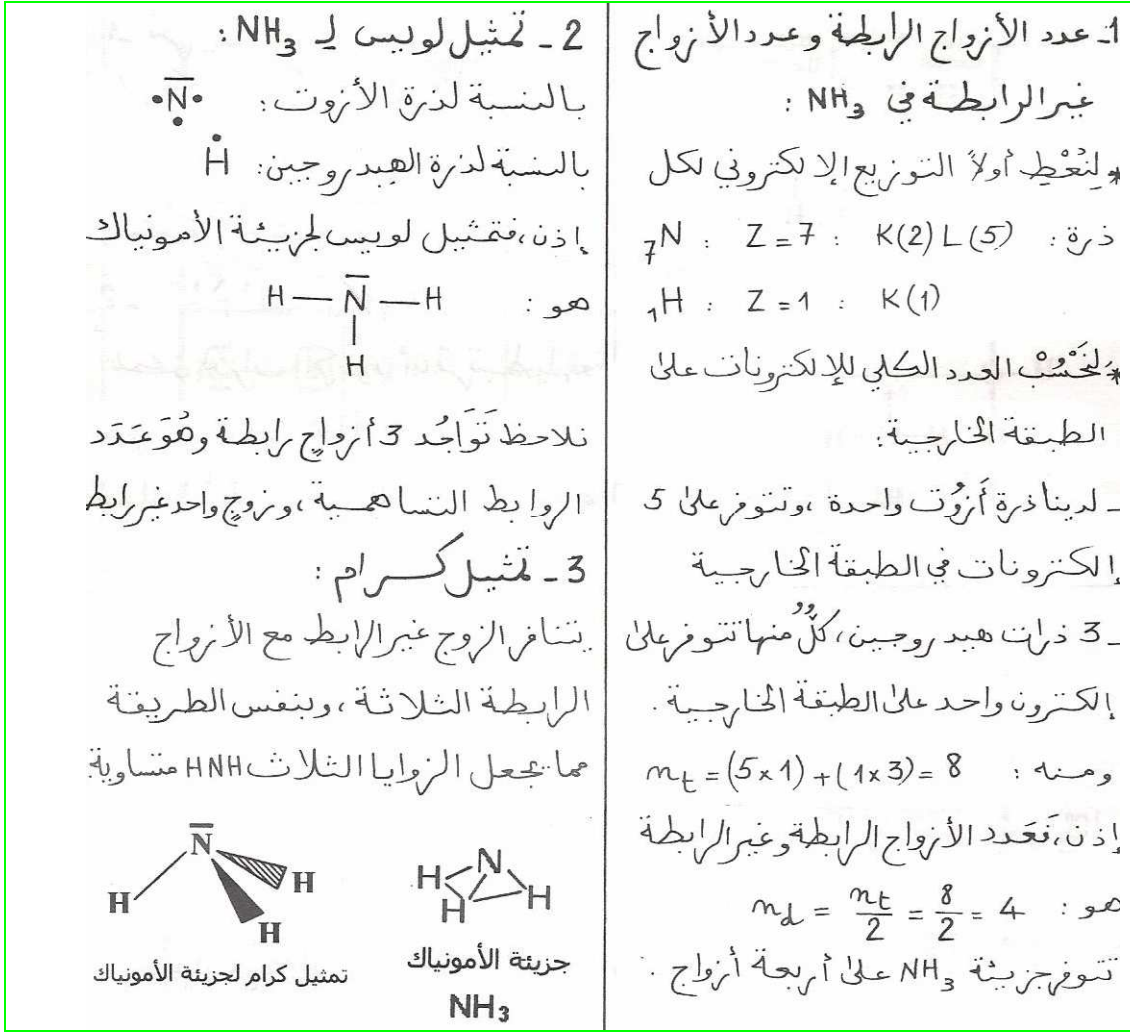 1ـ عدد الأزواج الرابطة وعدد الأزواج
غير الرابطة في NH₃ :
* لِنُعْطِ أولاً التوزيع الإلكتروني لكل
ذرة : ₇N : Z = 7 : K(2) L(5)
₁H : Z = 1 : K(1)
* لِنَحْسُبْ العدد الكلي للإلكترونات على
الطبقة الخارجية :
ـ لدينا ذرة أَزُوت واحدة ، وتتوفر على 5
إلكترونات في الطبقة الخارجية
ـ 3 ذرات هيدروجين ، كلٌّ منها تتوفر على
إلكترون واحد على الطبقة الخارجية .
ومنه : nt = (5x1) + (1x3) = 8
إذن ، فَعَدد الأزواج الرابطة وغير الرابطة
هو : nd = nt/2 = 8/2 = 4
تتوفر جزيئة NH₃ على أربعة أزواج .
2 ـ تمثيل لويس لـ NH₃ :
بالنسبة لذرة الأزوت : •N•
•
بالنسبة لذرة الهيدروجين : H
إذن ، فتمثيل لويس لجزيئة الأمونياك
هو : H — N — H
H
نلاحظ تَوَاجُد 3 أزواجٍ رابطة وهُوَ عَدَد
الروابط التساهمية ، وزوجٍ واحد غير رابط
3 ـ تمثيل كرام :
يتنافر الزوج غير الرابط مع الأزواج
الرابطة الثلاثة ، وبنفس الطريقة
مما يجعل الزوايا الثلاث HNH متساوية
N
H
H
H
تمثيل كرام لجزيئة الأمونياك
N
H
H
H
جزيئة الأمونياك
NH₃